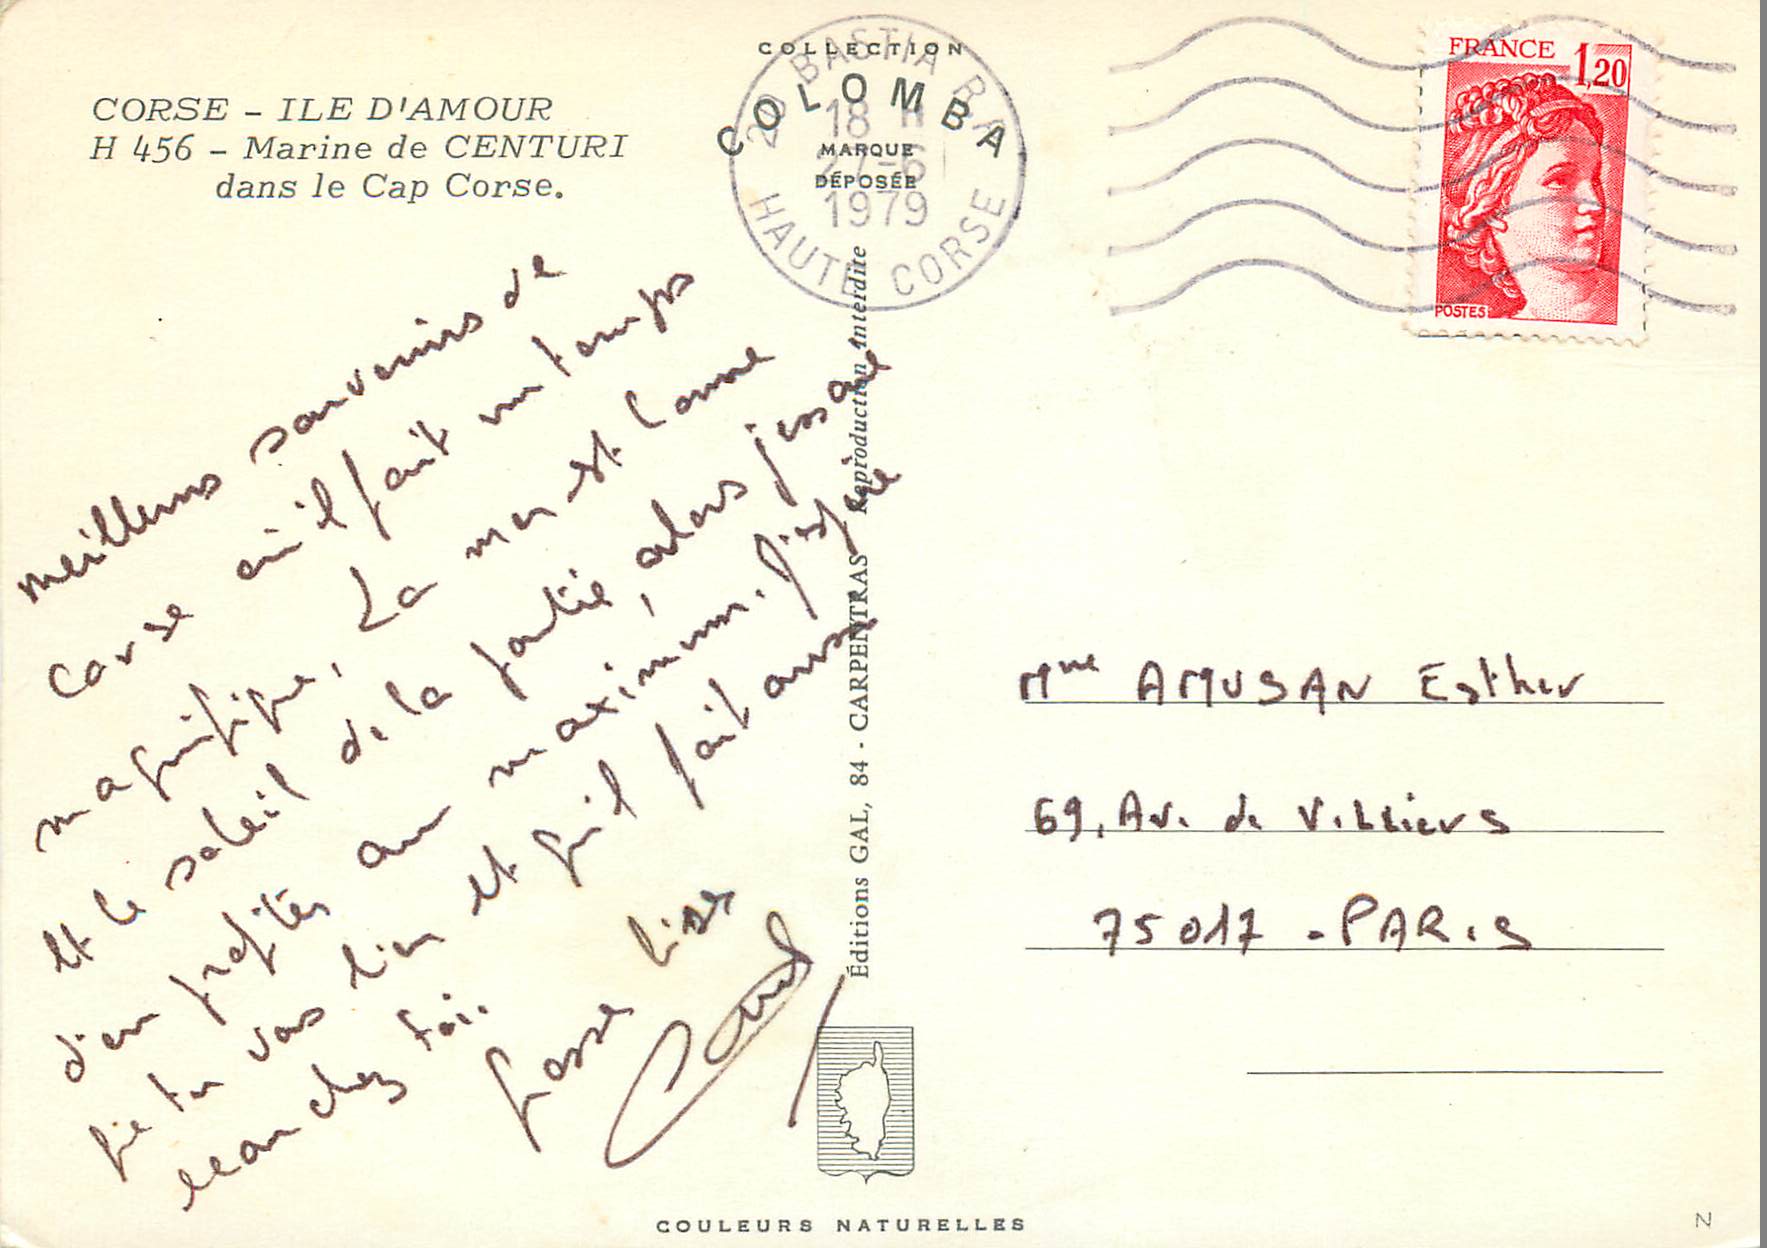 CORSE - ILE D'AMOUR
H 456 - Marine de CENTURI
dans le Cap Corse.
COLLECTION
COLOMBA
MARQUE
DÉPOSÉE
20 BASTIA R.P.
18 H
27-6
1979
HAUTE CORSE
FRANCE 1,20
POSTES
meilleurs souvenirs de
Corse où il fait un temps
magnifique, La mer est bonne
et le soleil de la partie, alors j'essaie
d'en profiter au maximum. J'espère
que tu vas bien et qu'il fait aussi
beau chez toi.
Grosses bises
Éditions GAL, 84 - CARPENTRAS Reproduction interdite
Mme AMUSAN Esther
69, Av. de Villiers
75017 - PARIS
COULEURS NATURELLES
N